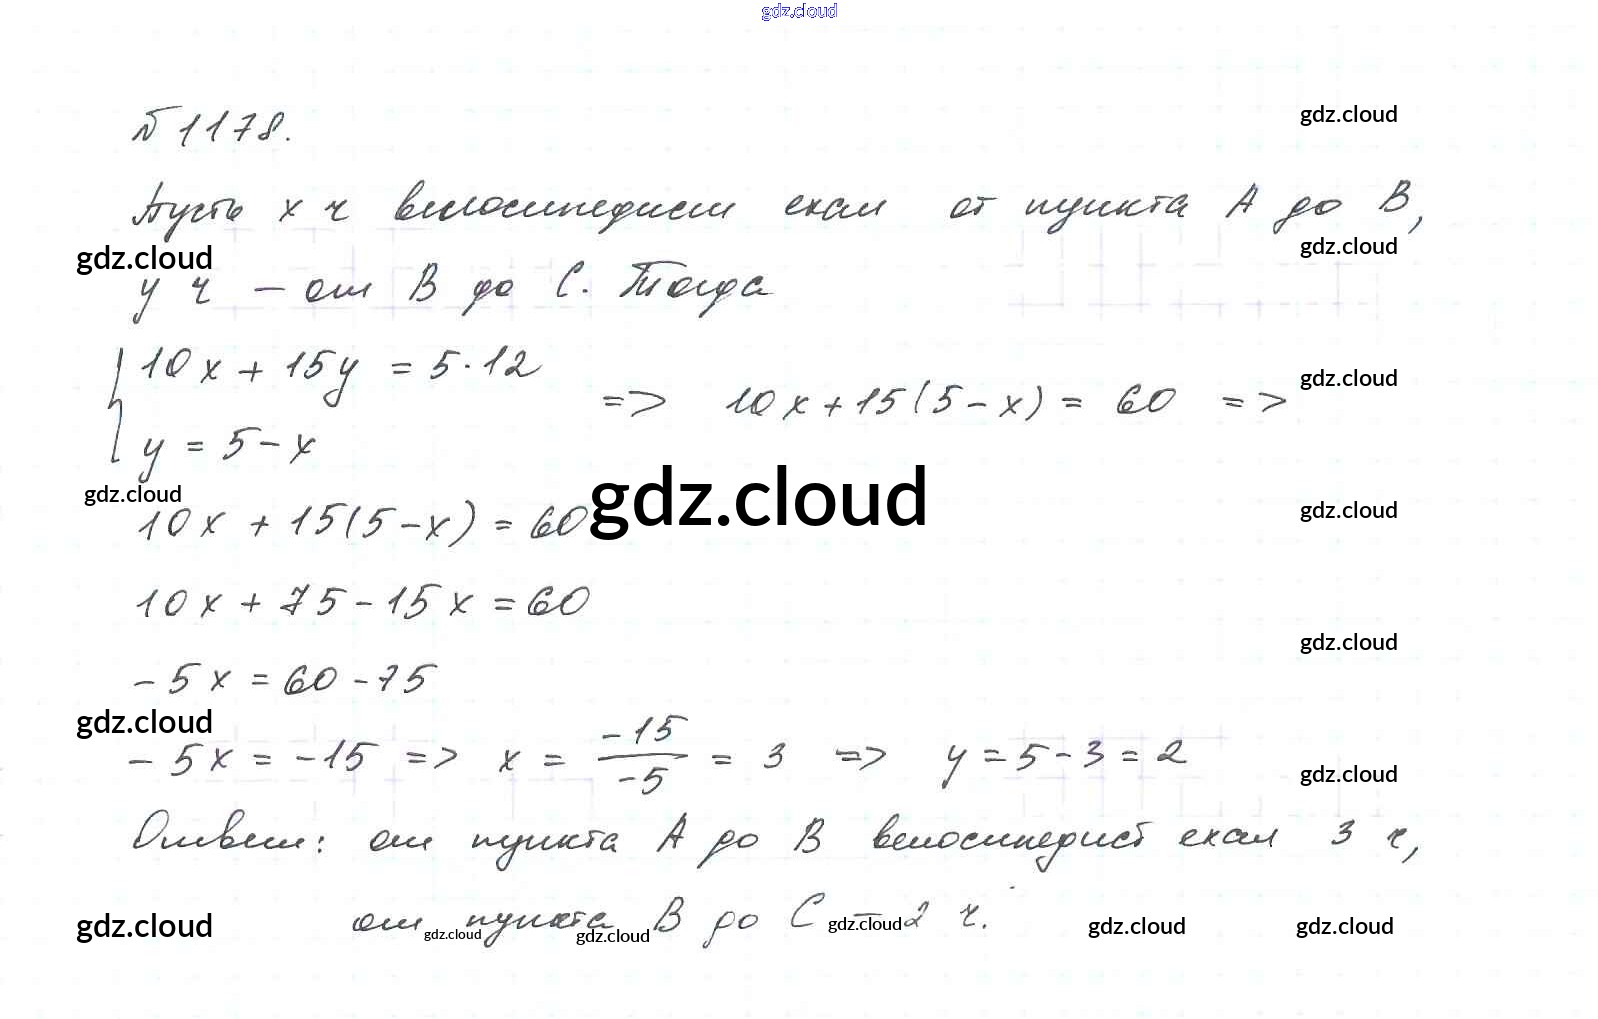 gdz.cloud
№1178.
gdz.cloud
Пусть x ч велосипедист ехал от пункта A до B,
gdz.cloud
gdz.cloud
y ч – от B до C. Тогда
{ 10x + 15y = 5·12
y = 5 - x
=> 10x + 15(5 - x) = 60 =>
gdz.cloud
gdz.cloud
gdz.cloud
gdz.cloud
10x + 15(5 - x) = 60
10x + 75 - 15x = 60
gdz.cloud
-5x = 60 - 75
gdz.cloud
-5x = -15 => x = -15/-5 = 3 => y = 5 - 3 = 2
gdz.cloud
Ответ: от пункта A до B велосипедист ехал 3 ч,
от пункта B до C – 2 ч.
gdz.cloud
gdz.cloud
gdz.cloud
gdz.cloud
gdz.cloud
gdz.cloud